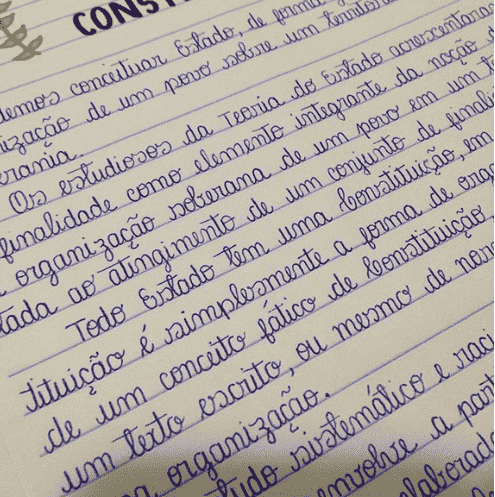 CONST
demos conceituar Estado, de forma
nização de um povo sobre um território
erania.
Os estudiosos da Teoria do Estado acrescentaram
finalidade como elemento integrante da noção d
organização soberana de um povo em um t
tada ao atingimento de um conjunto de finali
Todo Estado tem uma Constituição, em
tituição é simplesmente a forma de orga
de um conceito fático de Constituição
um texto escrito, ou mesmo de nor
organização.
tudo sistemático e raci
envolve a part
elaborada